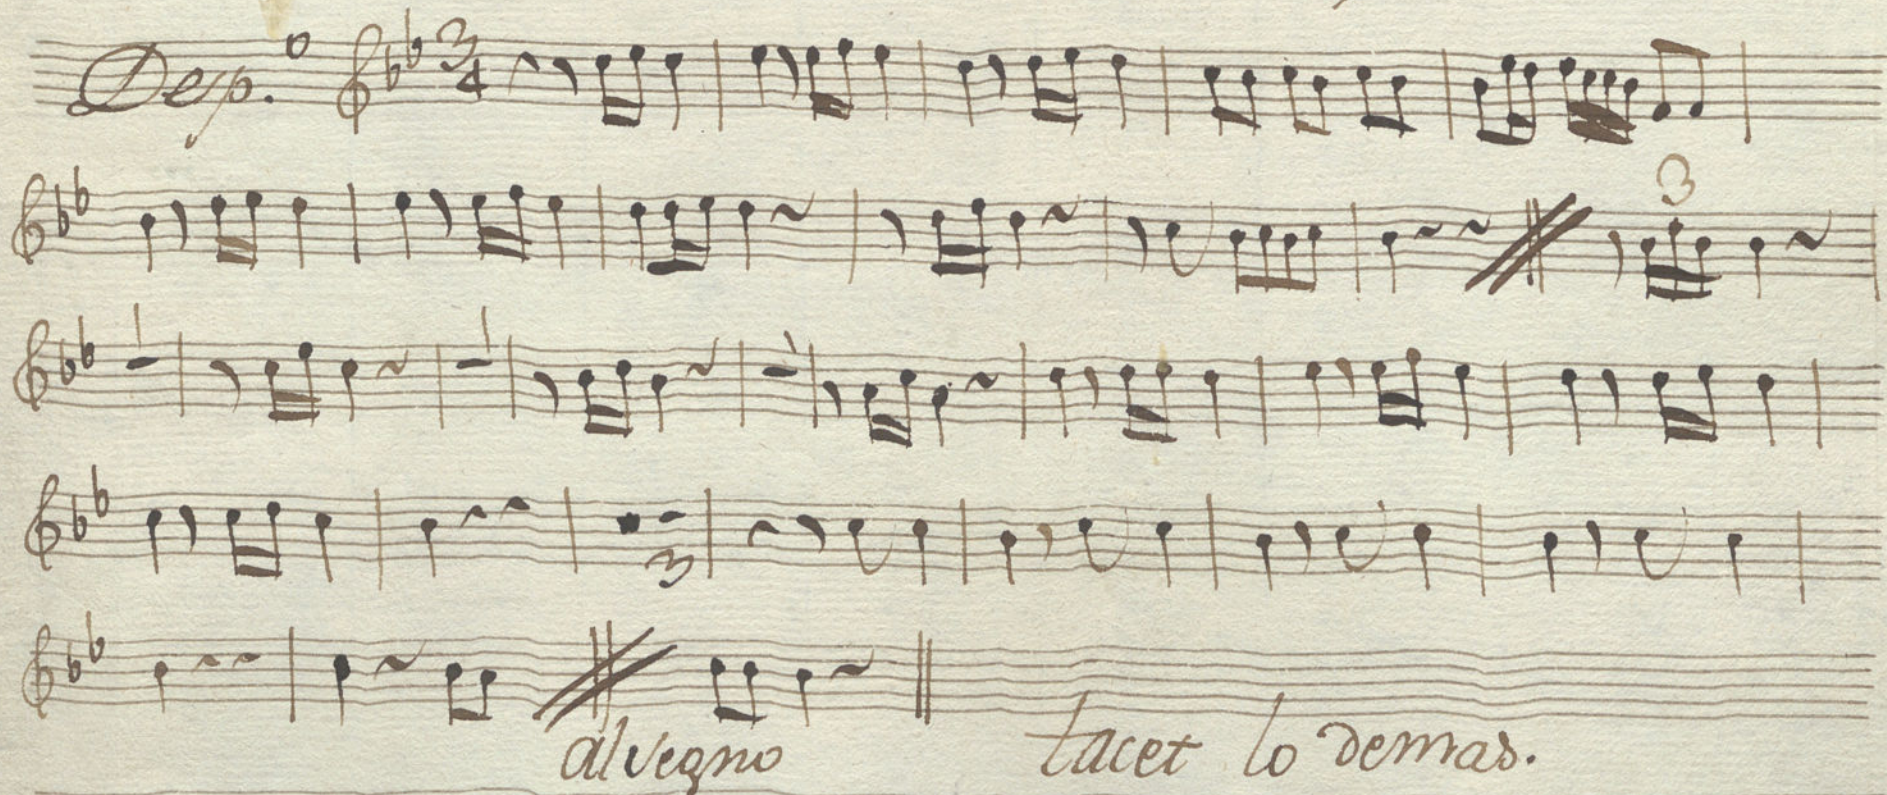 Desp.º 3/4
3
3
al segno tacet lo demas.